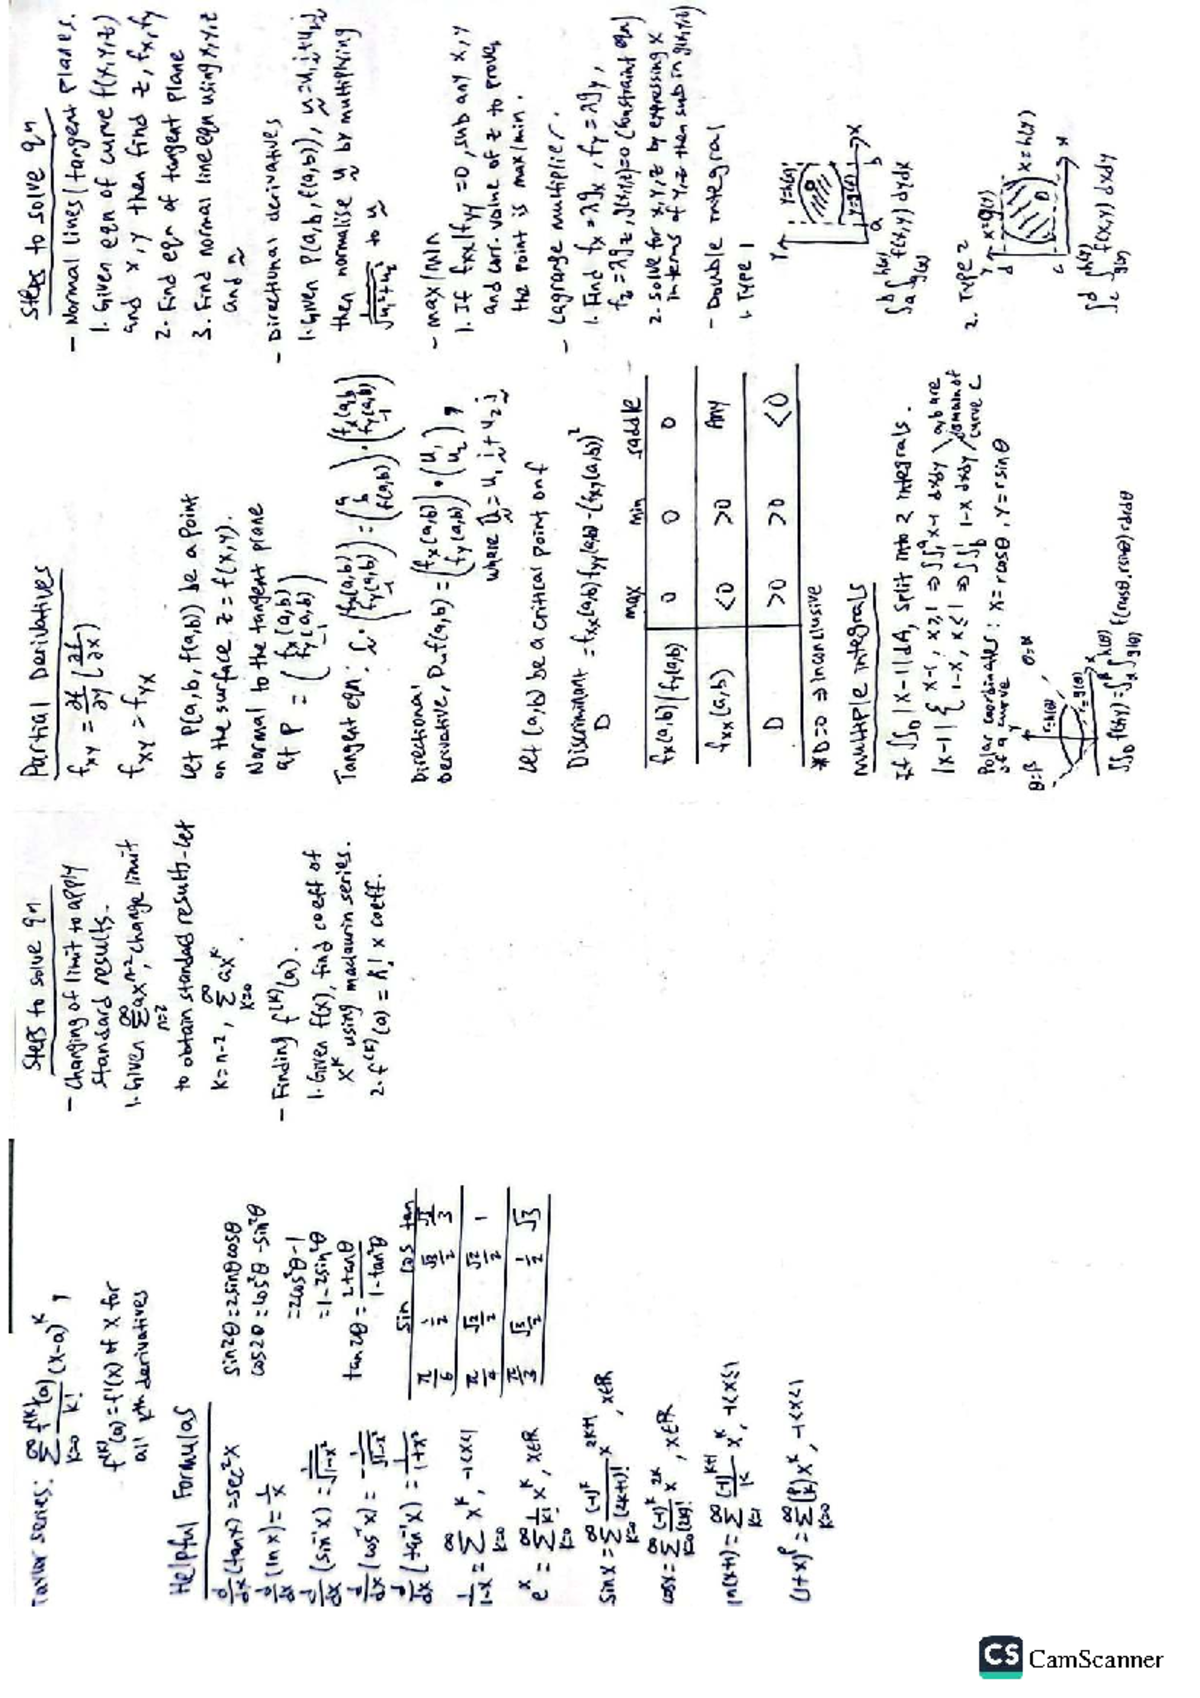 Taylor series: ∞Σk=0 f^(k)(a)/k! (x-a)^k ,
f^(k)(a) = f'(x) of x for
all kth derivatives
Helpful Formulas
d/dx (tanx) = sec²x
d/dx (ln x) = 1/x
d/dx (sin⁻¹x) = 1/√(1-x²)
d/dx (cos⁻¹x) = -1/√(1-x²)
d/dx (tan⁻¹x) = 1/(1+x²)
1/(1-x) = ∞Σk=0 x^k, -1<x<1
e^x = ∞Σk=0 1/k! x^k, x∈R
sinx = ∞Σk=0 (-1)^k/(2k+1)! x^(2k+1), x∈R
cosx = ∞Σk=0 (-1)^k/(2k)! x^(2k), x∈R
ln(x+1) = ∞Σk=1 (-1)^(k+1)/k x^k, -1<x≤1
(1+x)^p = ∞Σk=0 (p k) x^k, -1<x<1
sin2θ = 2sinθcosθ
cos2θ = cos²θ - sin²θ
= 2cos²θ - 1
= 1 - 2sin²θ
tan2θ = 2tanθ/(1-tan²θ)
sin cos tan
π/6 1/2 √3/2 √3/3
π/4 √2/2 √2/2 1
π/3 √3/2 1/2 √3
Steps to solve qn
- Changing of limit to apply
standard results.
1. Given ∞Σn=2 ax^(n-2), change limit
to obtain standard results - let
k=n-2, ∞Σk=0 ax^k.
- Finding f^(k)(a).
1. Given f(x), find coeff of
x^k using maclaurin series.
2. f^(k)(a) = k! x coeff.
Partial Derivatives
fxy = ∂f/∂y (∂f/∂x)
fxy = fyx
Let P(a,b,f(a,b)) be a point
on the surface z = f(x,y).
Normal to the tangent plane
at P = (fx(a,b) fy(a,b) -1)
Tangent eqn: r · (fx(a,b) fy(a,b) -1) = (a b f(a,b)) · (fx(a,b) fy(a,b) -1)
Directional
Derivative, Duf(a,b) = (fx(a,b) fy(a,b)) · (u1 u2),
where u = u1 i + u2 j
Let (a,b) be a critical point on f
Discriminant = fxx(a,b)fyy(a,b) - (fxy(a,b))²
D
max min saddle
fx(a,b)/fy(a,b) 0 0 0
fxx(a,b) <0 >0 Any
D >0 >0 <0
*D=0 ⇒ inconclusive
Multiple integrals
If ∫∫D |x-1| dA, split into 2 integrals.
|x-1| { x-1, x≥1 ⇒ ∫∫₁^a x-1 dxdy \ a,b are
1-x, x≤1 ⇒ ∫∫b^1 1-x dxdy / domain of
curve C
Polar coordinates: x=rcosθ, y=rsinθ
of a curve
θ=β y θ=α
r=h(θ) r=g(θ) x
∫∫D f(x,y) = ∫α^β ∫g(θ)^h(θ) f(rcosθ, rsinθ) r dr dθ
Steps to solve qn
- Normal lines (tangent planes.
1. Given eqn of curve f(x,y,z)
and x, y then find z, fx, fy
2. Find eqn of tangent plane
3. Find normal line eqn using x,y,z
and n
- Directional derivatives
1. Given P(a,b,f(a,b)), u=u1 i+u2 j
then normalise u by multiplying
1/√(u1²+u2²) to u
- max/min
1. If fxx/fyy = 0, sub any x, y
and corr. value of z to prove
the point is max/min.
- Lagrange multiplier.
1. Find fx = λgx, fy = λgy,
fz = λgz, g(x,y,z)=0 (constraint eqn)
2. Solve for x,y,z by expressing x
in terms of y,z then sub in g(x,y,z)
- Double integral
1. Type 1
y y=h(x) D y=g(x) a b x
∫a^b ∫g(x)^h(x) f(x,y) dydx
2. Type 2
y x=g(y) d D x=h(y) c x
∫c^d ∫g(y)^h(y) f(x,y) dxdy
CS CamScanner